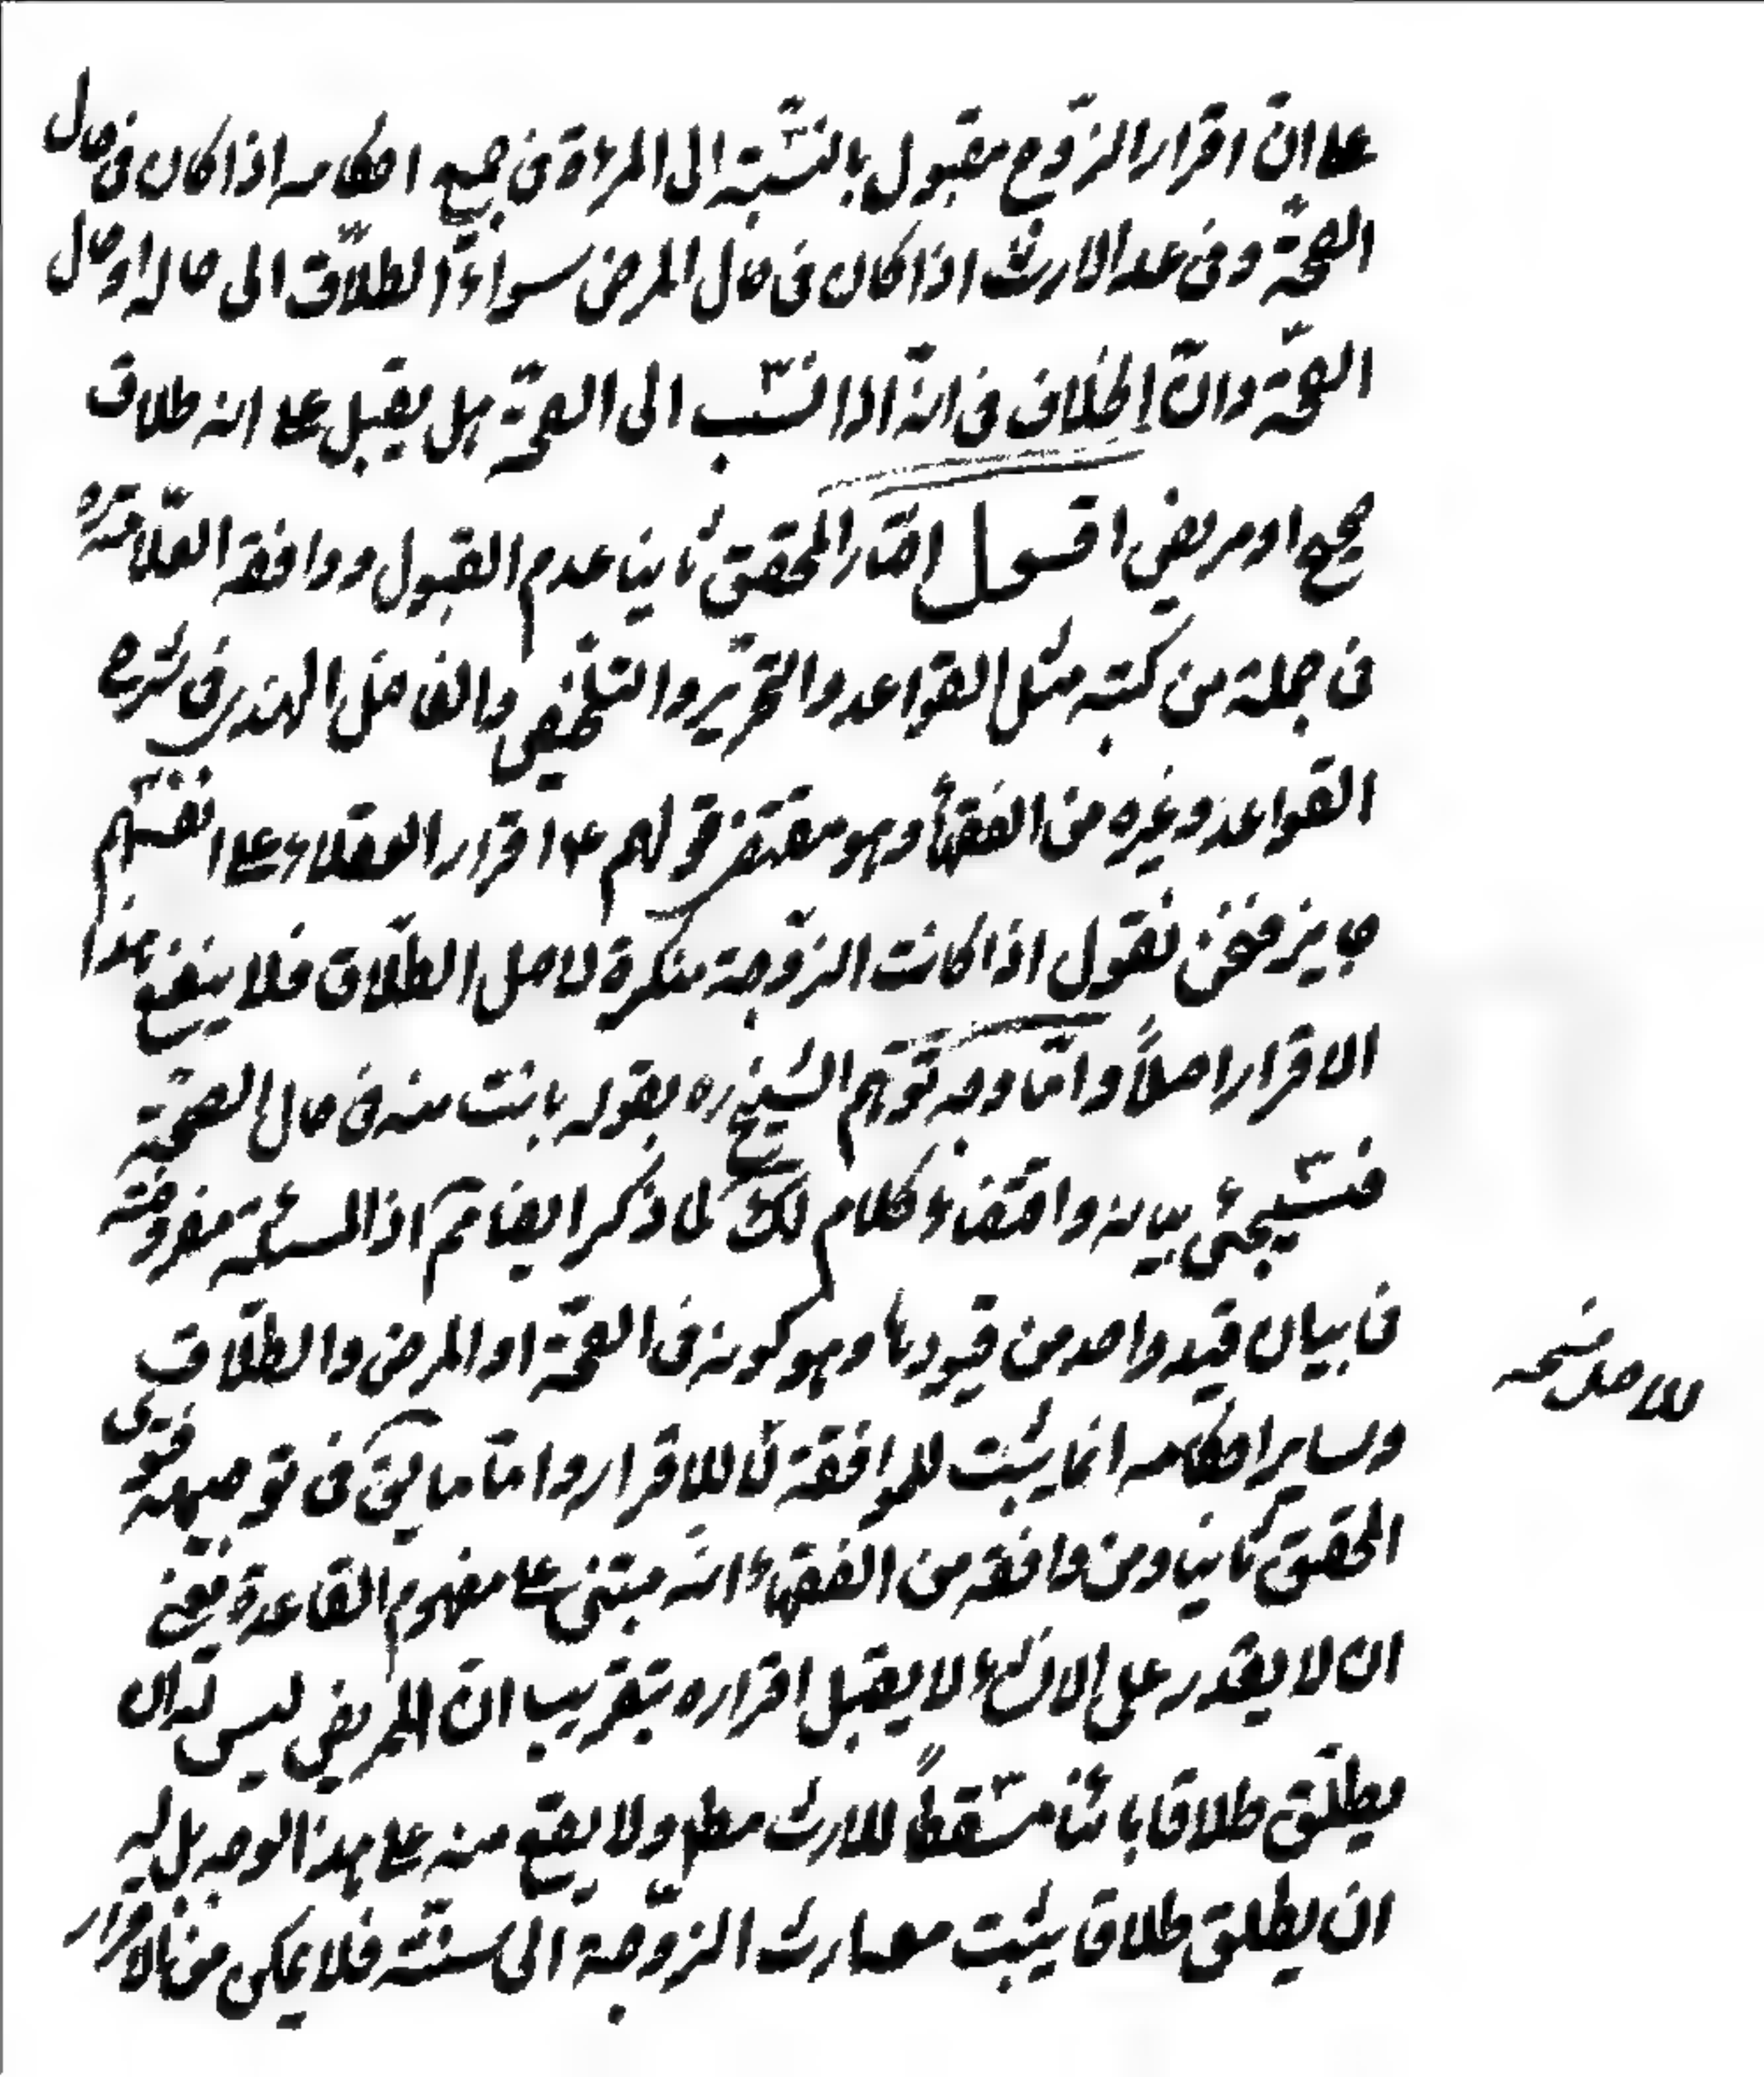 على ان اقرار الزوج مقبول بالنسبة الى المرءة فى جميع احكامه اذا كان فى حال
الصحّة وفى عدا الارث اذا كان فى حال المرض سواء الطلّاق الى حاله او حال
الصحّة وانّ الخلاف فى انّه اذا انتسب الى الصحّة هل يقبل على انه طلاق
صحيح او مريض اقول اختار المحقق ثانيا عدم القبول ووافقه العلّامة ره
فى جملة من كتبه مثل القواعد والتحرير والتلخيص والفاضل الهندى فى شرح
القواعد وغيره من الفقهاء وهو مقتضى قولهم ع اقرار العقلاء على انفسهم
جايز فنحن نقول اذا كانت الزوّجة منكرة لاصل الطلّاق فلا ينفع هذا
الاقرار اصلاً وامّا وجه توهّم الشيخ ره بقوله بانت منه فى حال الصحّة
فسيجئ بيانه واقتضاء كلام لك لما ذكر ايضا تم اذ المسئلة مفروضة
فى بيان قيد واحد من قيودها وهو كونه فى الصحّة او المرض والطلّاق
وساير احكامه انما يثبت للموافقة لا للاقرار وامّا ما يق فى توجيه فتوى
المحقق ثانيا ومن وافقه من الفقهاء انّه مبتنى على مفهوم القاعدة يعنى
ان لا يقدر على الانشاء لا يقبل اقراره بتقريب انّ المريض ليس له ان
يطلّق طلاقا بائنا مسقطاً للارث مطم ولا يقع منه على هذا الوجه بل له
ان يطلق طلاقا يثبت معه ارث الزوّجة الى سنة فلا يمكن من الاقرار
للاصل نسخه